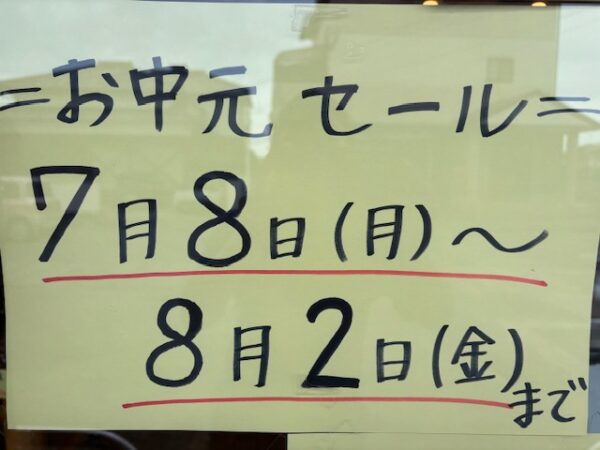 =お中元 セール=
7月8日(月)〜
8月2日(金)まで